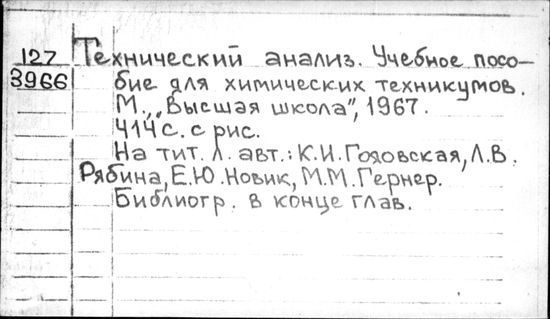 127
3966
Технический анализ. Учебное посо-
бие для химических техникумов.
М., „Высшая школа", 1967.
414 с. с рис.
На тит. л. авт.: К.И. Годовская, Л.В.
Рябина, Е.Ю. Новик, М.М. Гернер.
Библиогр. в конце глав.